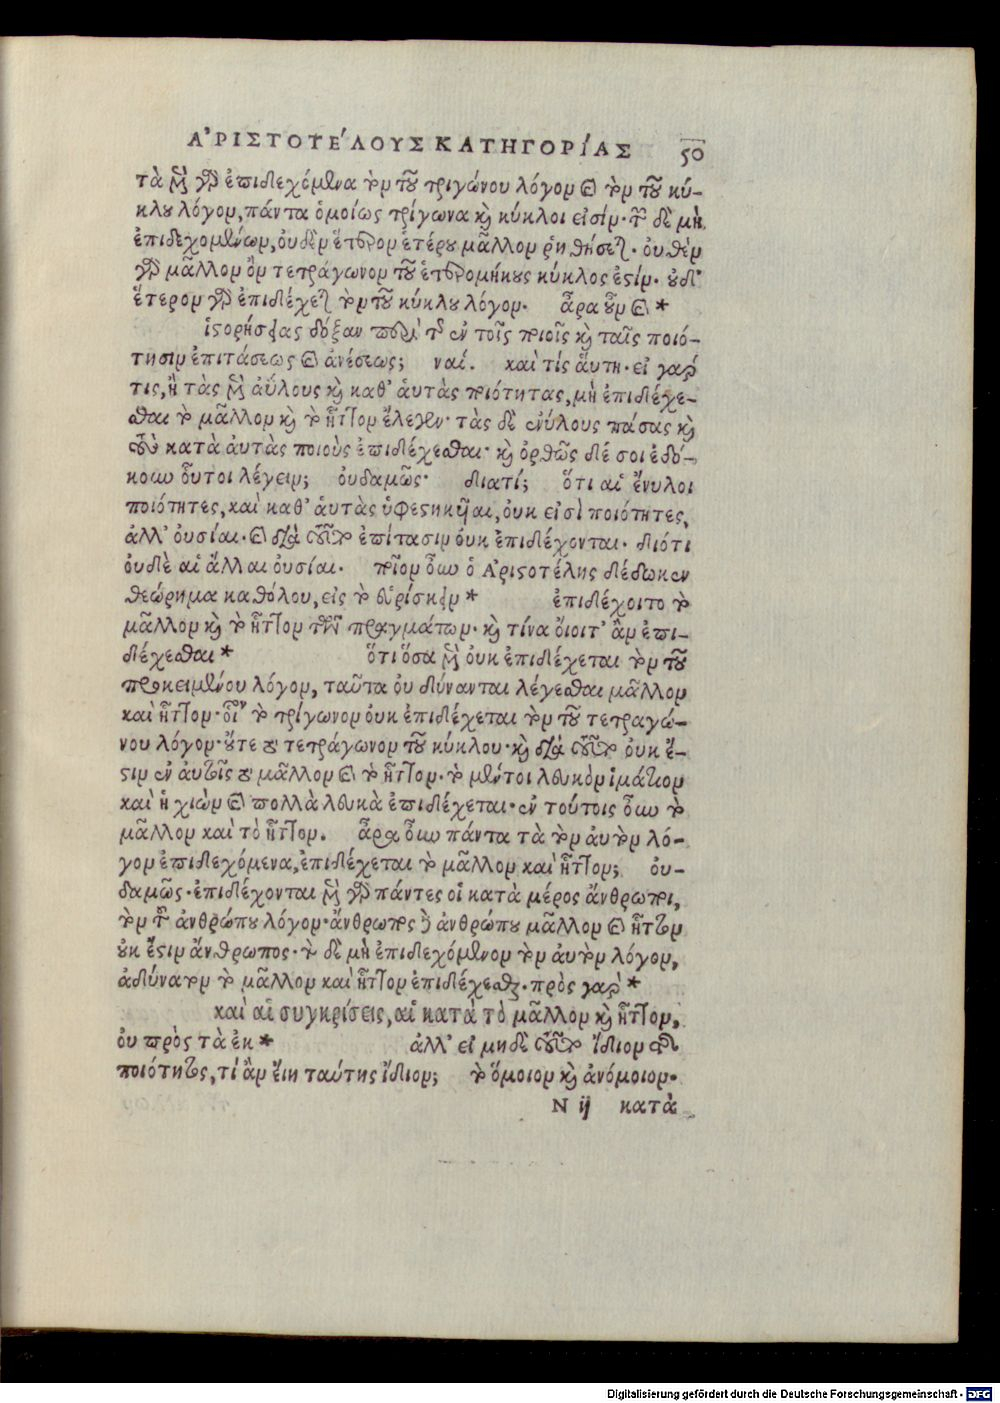 ΑʼΡΙΣΤΟΤΕʹΛΟΥΣ ΚΑΤΗΓΟΡΙʹΑΣ 50
τὰ μὲν γὰρ ἐπιδεχόμενα τὸν τοῦ τριγώνου λόγον καὶ τὸν τοῦ κύ-
κλου λόγον, πάντα ὁμοίως τρίγωνα καὶ κύκλοι εἰσίν· τῶν δὲ μὴ
ἐπιδεχομένων, οὐδὲν ἕτερον ἑτέρου μᾶλλον ῥηθήσεται. οὐθὲν
γὰρ μᾶλλον ὂν τετράγωνον τοῦ ἑτερομήκους κύκλος ἐστίν. οὐδʼ
ἕτερον γὰρ ἐπιδέχεται τὸν τοῦ κύκλου λόγον. ἆρα οὖν καὶ *
ἱστορήσειας δόξαν περὶ τῆς ἐν τοῖς ποιοῖς καὶ ταῖς ποιό-
τησιν ἐπιτάσεως καὶ ἀνέσεως; ναί. καὶ τίς ἅυτη· εἰ γάρ
τις, ἢ τὰς μὲν ἀΰλους καὶ καθʼ ἁυτὰς ποιότητας, μὴ ἐπιδέχε-
σθαι τὸ μᾶλλον καὶ τὸ ἧττον ἔλεγεν· τὰς δὲ ἐνύλους πάσας καὶ
τοὺς κατὰ ἀυτὰς ποιοὺς ἐπιδέχεσθαι· καὶ ὀρθῶς δέ σοι ἐδό-
κουν οὗτοι λέγειν; οὐδαμῶς· διατί; ὅτι αἱ ἔνυλοι
ποιότητες, καὶ καθʼ ἁυτὰς ὑφεστηκῆαι, οὐκ εἰσὶ ποιότητες,
ἀλλʼ οὐσίαι. καὶ διὰ τοῦτο ἐπίτασιν οὐκ ἐπιδέχονται. διότι
οὐδὲ αἱ ἄλλαι οὐσίαι. ποῖον οὖν ὁ Ἀριστοτέλης δέδωκεν
θεώρημα καθόλου, εἰς τὸ εὑρίσκειν * ἐπιδέχοιτο τὸ
μᾶλλον καὶ τὸ ἧττον τῶν πραγμάτων. καὶ τίνα ὄιοιτʼ ἂν ἐπι-
δέχεσθαι * ὅτι ὅσα μὲν οὐκ ἐπιδέχεται τὸν τοῦ
προκειμένου λόγον, ταῦτα οὐ δύνανται λέγεσθαι μᾶλλον
καὶ ἧττον· οἷον τὸ τρίγωνον οὐκ ἐπιδέχεται τὸν τοῦ τετραγώ-
νου λόγον· οὔτε τὸ τετράγωνον τοῦ κύκλου· καὶ διὰ τοῦτο οὐκ ἔ-
στιν ἐν ἀυτοῖς τὸ μᾶλλον καὶ τὸ ἧττον. τὸ μέντοι λευκὸν ἱμάτιον
καὶ ἡ χιὼν καὶ πολλὰ λευκὰ ἐπιδέχεται· ἐν τούτοις οὖν τὸ
μᾶλλον καὶ τὸ ἧττον. ἆρα οὖν πάντα τὰ τὸν ἀυτὸν λό-
γον ἐπιδεχόμενα, ἐπιδέχεται τὸ μᾶλλον καὶ ἧττον; οὐ-
δαμῶς· ἐπιδέχονται μὲν γὰρ πάντες οἱ κατὰ μέρος ἄνθρωποι,
τὸν τοῦ ἀνθρώπου λόγον· ἄνθρωπος δὲ ἀνθρώπου μᾶλλον καὶ ἧττον
οὐκ ἔστιν ἄνθρωπος· τὸ δὲ μὴ ἐπιδεχόμενον τὸν ἀυτὸν λόγον,
ἀδύνατον τὸ μᾶλλον καὶ ἧττον ἐπιδέχεσθαι. πρὸς γὰρ *
καὶ αἱ συγκρίσεις, αἱ κατὰ τὸ μᾶλλον καὶ ἧττον,
οὐ πρὸς τὰ ἐκ * ἀλλʼ εἰ μηδὲ τοῦτο ἴδιον τῆς
ποιότητος, τί ἂν ἔιη ταύτης ἴδιον; τὸ ὅμοιον καὶ ἀνόμοιον.
N ij κατὰ
Digitalisierung gefördert durch die Deutsche Forschungsgemeinschaft - DFG